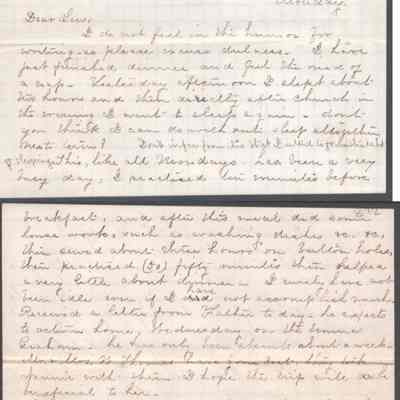 Monday.
Dear Line,
I do not feel in the humor for
writing so please excuse dulness. I have
just finished dinner and feel the need of
a nap. Yesterday afternoon I slept about
two hours and then directly after church in
the evening I went to sleep again - don't
you think I can do without sleep altogether
next time? Don't infer from this that I
of sleeping This, like all Mondays has been a very
busy day, I practised minutes before
breakfast, and after this meal did some
house work, such as washing dishes &c. &c,
then sewed about three hours on button holes,
then practised (50) fifty minutes then helped
a very little about dinner. I surely have not
been idle even if I have not accomplished much.
Received a letter from Father to-day - he expects
to return home, Wednesday on the
Graham. he has only been about a week.
with them. I hope the trip will be
beneficial to her.